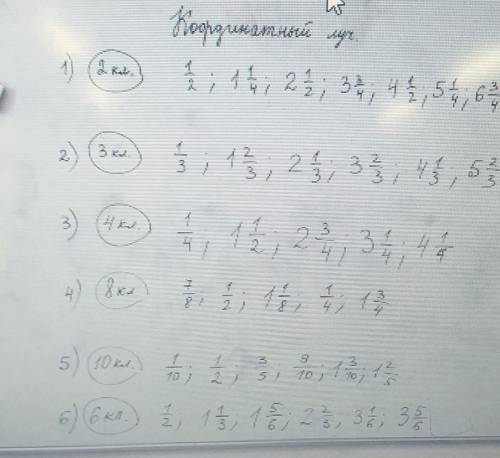 Координатный луч.
1) 2 кл. 1/2 ; 1 1/4 ; 2 1/2 ; 3 3/4 ; 4 1/2 , 5 1/4 ; 6 3/4
2) 3 кл. 1/3 ; 1 2/3 ; 2 1/3 ; 3 2/3 ; 4 1/3 , 5 2/3
3) 4 кл. 1/4 ; 1 1/2 ; 2 3/4 ; 3 1/4 ; 4 1/4
4) 8 кл 7/8 ; 1/2 ; 1 1/8 ; 1/4 ; 1 3/4
5) 10 кл. 1/10 ; 1/2 ; 3/5 ; 9/10 ; 1 3/10 ; 1 2/5
6) 6 кл. 1/2 , 1 1/3 , 1 5/6 ; 2 2/3 ; 3 1/6 ; 3 5/6